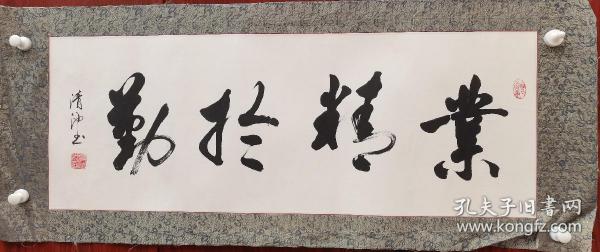 業精於勤
清沖书
孔夫子旧書网
www.kongfz.com